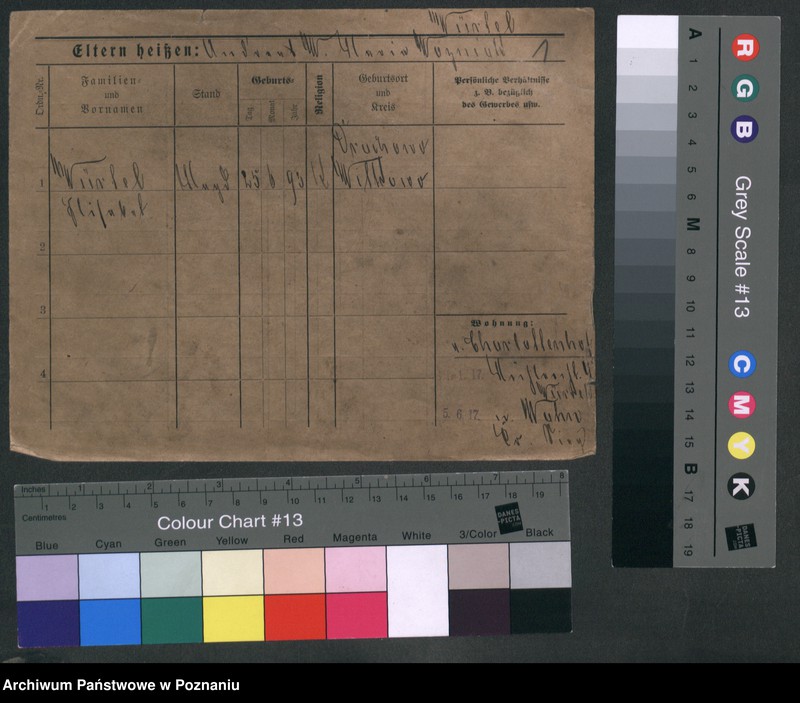 Würfel
Eltern heißen: Andreas W. Maria Wozniak 1
Ordn.-Nr.
Familien-
und
Vornamen
Stand
Geburts-
Tag
Monat
Jahr
Religion
Geburtsort
und
Kreis
Persönliche Verhältnisse
z. B. bezüglich
des Gewerbes usw.
1
Würfel
Elisabet
Magd
25 6 93
Witkowo
2
3
4
Wohnung:
v. Charlottenhof
5. 6. 17.
Inches 1 2 3 4 5 6 7 8
Centimetres 1 2 3 4 5 6 7 8 9 10 11 12 13 14 15 16 17 18 19
Colour Chart #13
DANES
-PICTA
.COM
Blue Cyan Green Yellow Red Magenta White 3/Color Black
A 1 2 3 4 5 6 M 8 9 10 11 12 13 14 15 B 17 18 19
R G B
Grey Scale #13
C M Y K
DANES
-PICTA
.COM
Archiwum Państwowe w Poznaniu